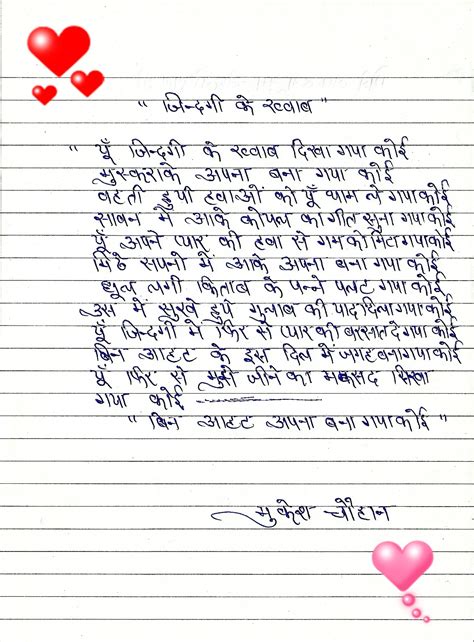 " जिन्दगी के ख्वाब "
" यूँ जिन्दगी के ख्वाब दिखा गया कोई
मुस्कराके अपना बना गया कोई
बहती हुयी हवाओं को यूँ थाम ले गया कोई
सावन में आके कोयल का गीत सुना गया कोई
यूँ अपने प्यार की हवा से गम को मिटा गया कोई
मिठे सपनो में आके अपना बना गया कोई
धूल लगी किताब के पन्ने पलट गया कोई
उस में सुखे हुये गुलाब की याद दिला गया कोई
यूँ जिन्दगी में फिर से प्यार की बरसात दे गया कोई
बिन आहट के इस दिल में जगह बना गया कोई
यूँ फिर से मुझे जीने का मकसद सिखा
गया कोई
" बिन आहट अपना बना गया कोई "
मुकेश चौहान